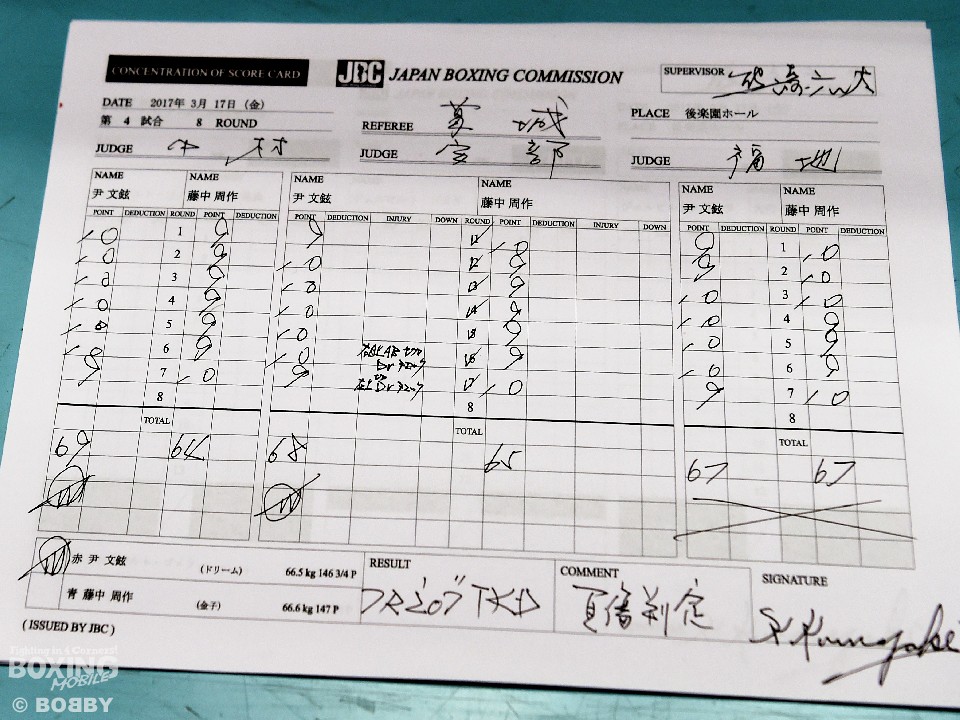 CONCENTRATION OF SCORE CARD
JBC JAPAN BOXING COMMISSION
SUPERVISOR
DATE 2017年 3月 17日 (金)
第 4 試合 8 ROUND
REFEREE
PLACE 後楽園ホール
JUDGE 中村
JUDGE 宮部
JUDGE 福地
NAME NAME NAME NAME NAME NAME
尹 文鉉 藤中 周作 尹 文鉉 藤中 周作 尹 文鉉 藤中 周作
POINT DEDUCTION ROUND POINT DEDUCTION POINT DEDUCTION INJURY DOWN ROUND POINT DEDUCTION INJURY DOWN POINT DEDUCTION ROUND POINT DEDUCTION
10 1 9 9 1 10 9 1 10
10 2 9 10 2 9 9 2 10
10 3 9 10 3 9 10 3 10
10 4 9 10 4 9 10 4 9
10 5 9 10 5 9 10 5 9
10 6 9 10 6 9 10 6 9
9 7 10 9 7 10 9 7 10
8 8 8
TOTAL TOTAL TOTAL
69 64 68 65 67 67
赤 尹 文鉉 (ドリーム) 66.5 kg 146 3/4 P
青 藤中 周作 (金子) 66.6 kg 147 P
RESULT
COMMENT 負傷判定
SIGNATURE
( ISSUED BY JBC )
Fighting in 4 Corners!
BOXING
MOBILE
© BOBBY